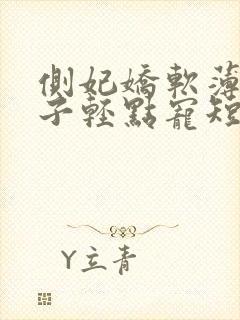 側妃嬌軟薄
子輕點寵短
Y立青